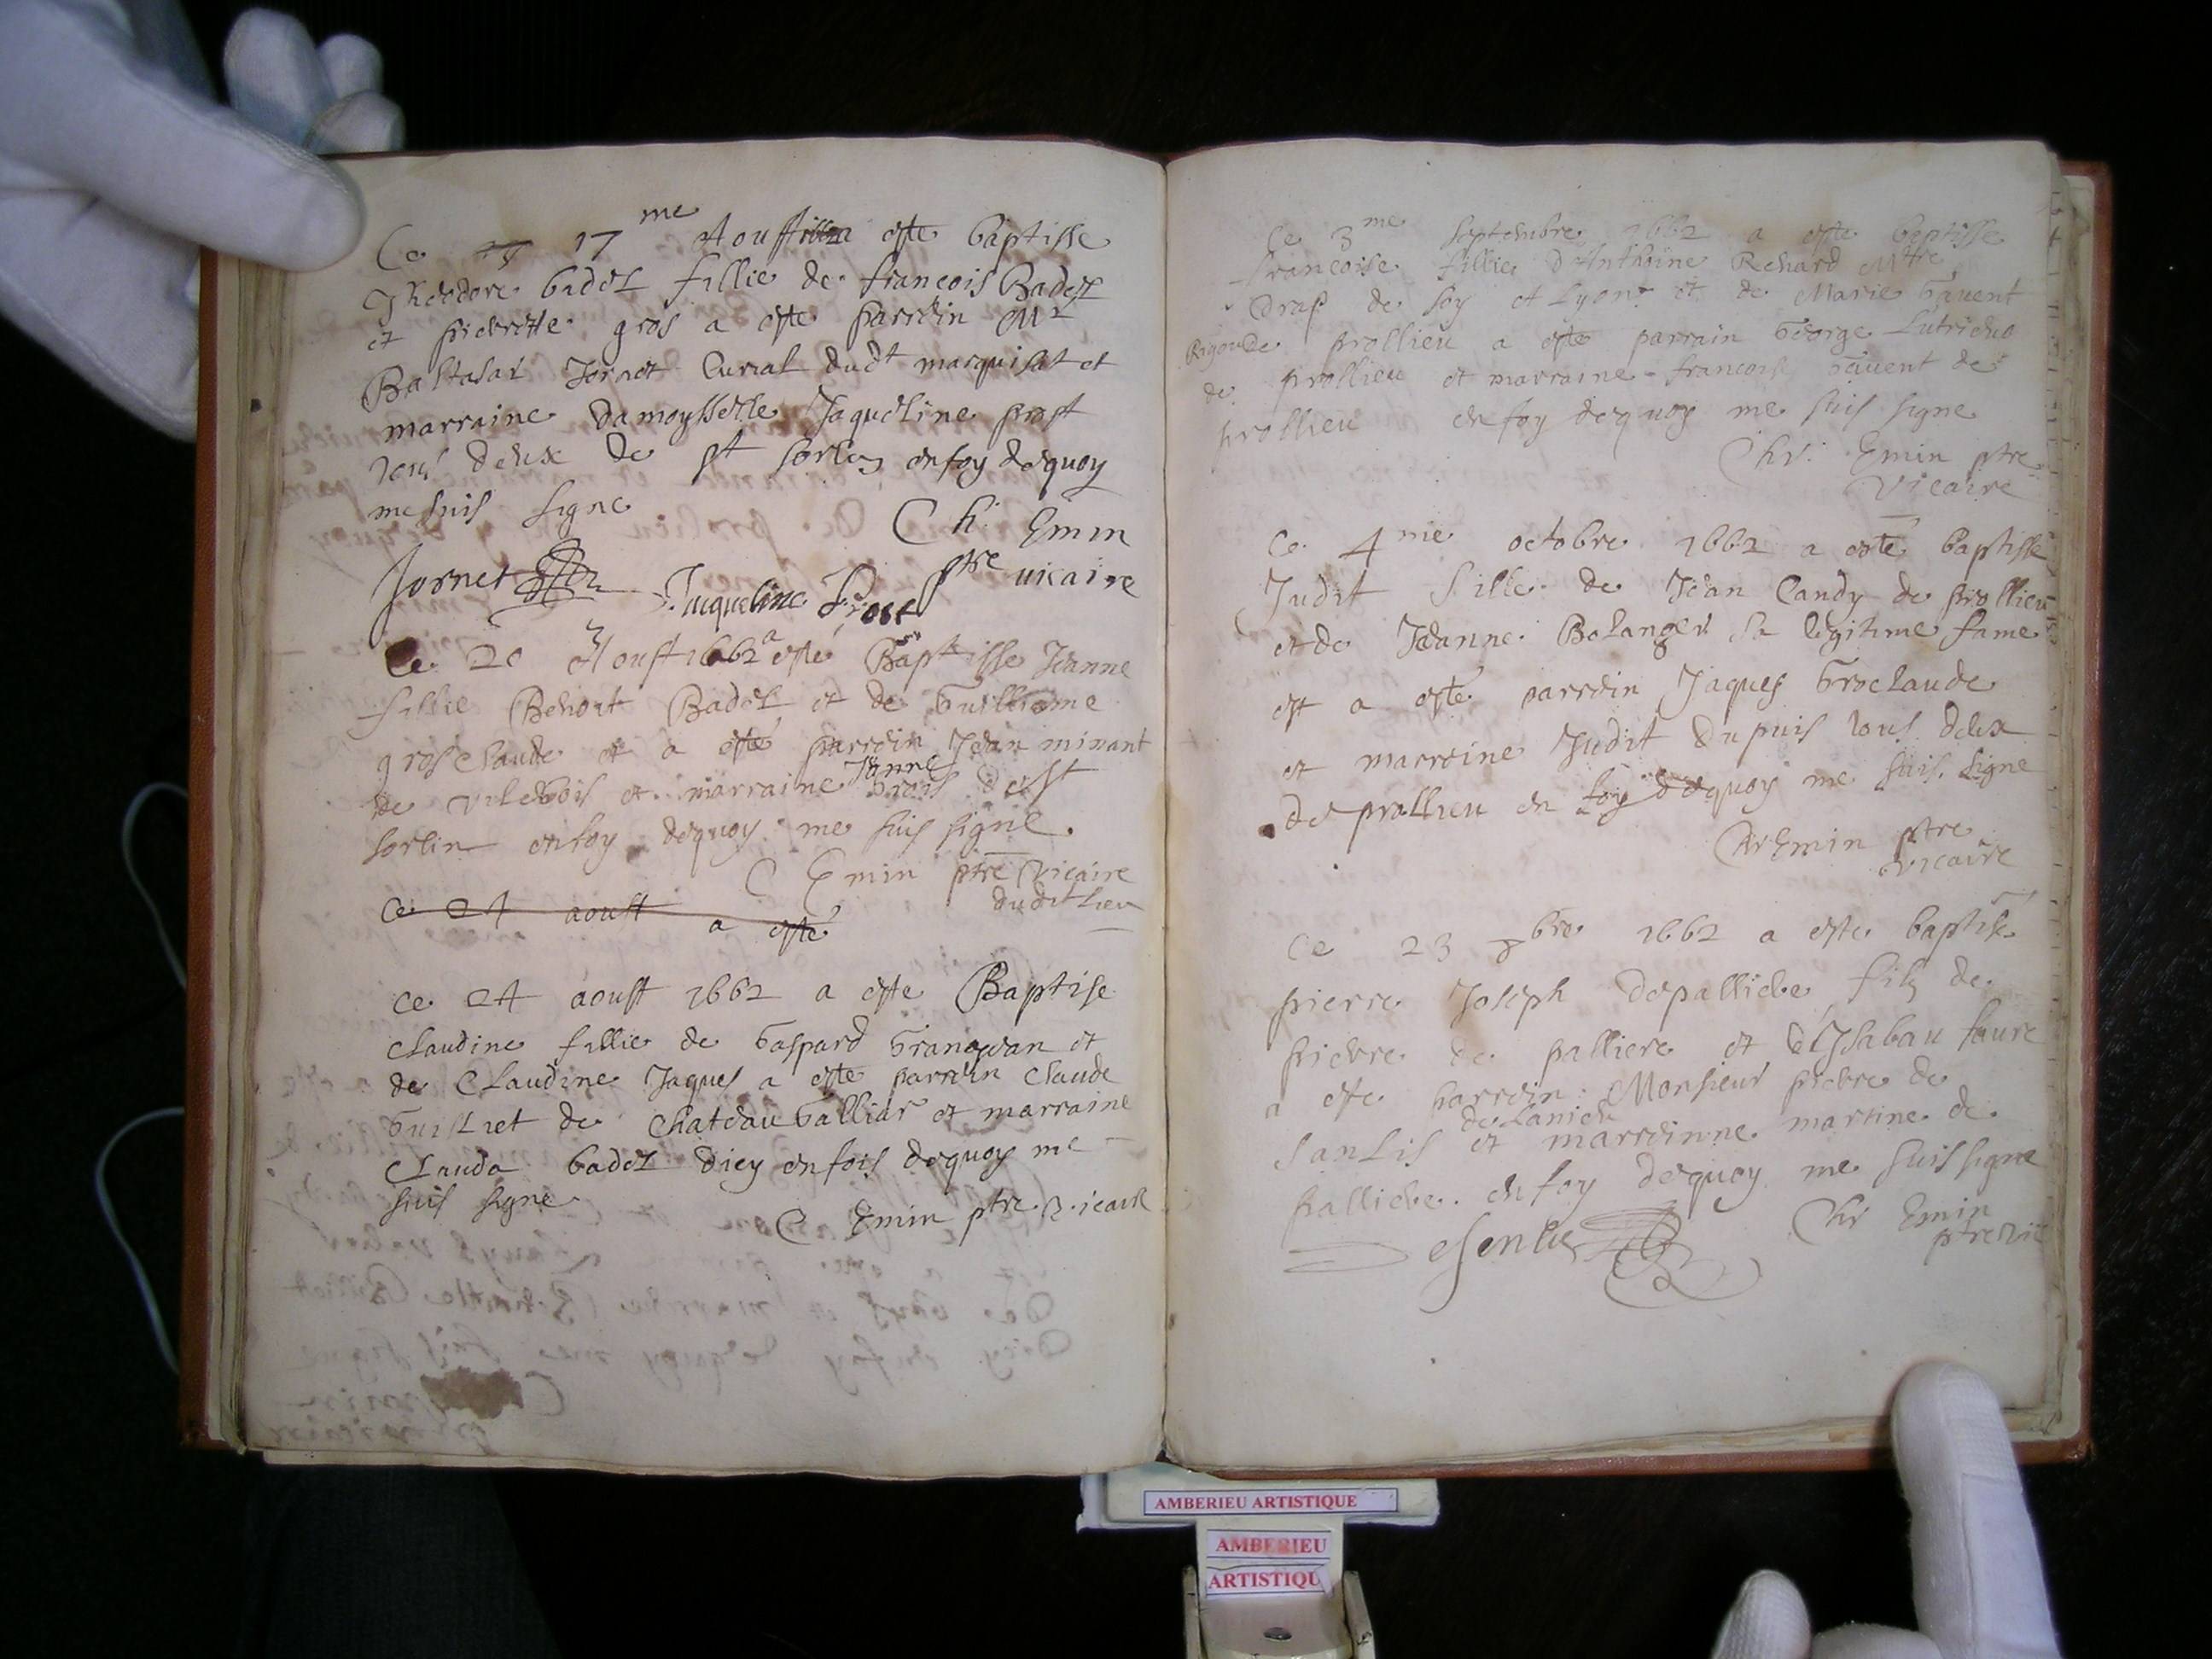 Ce 17me Aoust a este baptisse
Theodore badel fillie de francois Badel
et pierrette gros a este parrein Mr
Baltasar Jornet Curial dudt marquisat et
marraine damoysselle Jaqueline prost
tous deux de st sorlin en foy dequoy
me suis signe
Ch. Emin
ptre vicaire
Jornet
Jaqueline Prost
Ce 20 Aoust 1662 a este Baptisse Jeanne
fillie Benoit Badel et de Guilliame
grosclaude et a este parrein Jean minant
de vilebois et marraine Janne Grois de st
sorlin en foy dequoy me suis signe.
C Emin ptre Vicaire
dudit lieu
ce 24 aoust a este
ce 24 aoust 1662 a este Baptise
Claudine fillie de Gaspard Grangean et
de Claudine Jaques a este parrein Claude
de Chateau Galliar et marraine
Clauda badel dicy en fois dequoy me
suis signe
C Emin ptre Vicaire
Ce 3me Septembre 1662 a este baptisse
francoise fillie D'Anthoine Renard Mtre
Drap de soy et Lyon et de Marie
de prollieu a este parrain George
de prollieu et marraine francoise de
prollieu en foy dequoy me suis signe
Chr. Emin ptre
Vicaire
Ce 4me octobre 1662 a este baptisse
Judit fille de Jean Candy de prollieu
et de Jeanne Bolanger sa legitime fame
et a este parrein Jaques Groclaude
et marreine Judit Dupuis tous deux
de prollieu en foy dequoy me suis signe
Chr Emin ptre
vicaire
Ce 23 bre 1662 a este baptise
pierre Joseph depalliere filz de
pierre de palliere et d'Isabau faure
a este parrein Monsieur pierre de
de Lanieu
Sanlis et marreinne martine de
palliere. en foy dequoy me suis signe
Chr Emin
ptre vic
desenlis
AMBERIEU ARTISTIQUE
AMBERIEU
ARTISTIQU